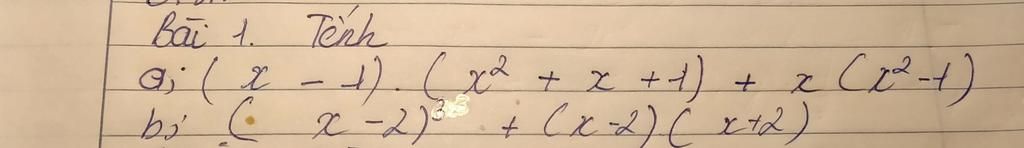 Bài 1. Tính
a; ( x - 1) . ( x² + x + 1) + x ( x² - 1)
b; ( x - 2)³ + ( x - 2) ( x + 2)